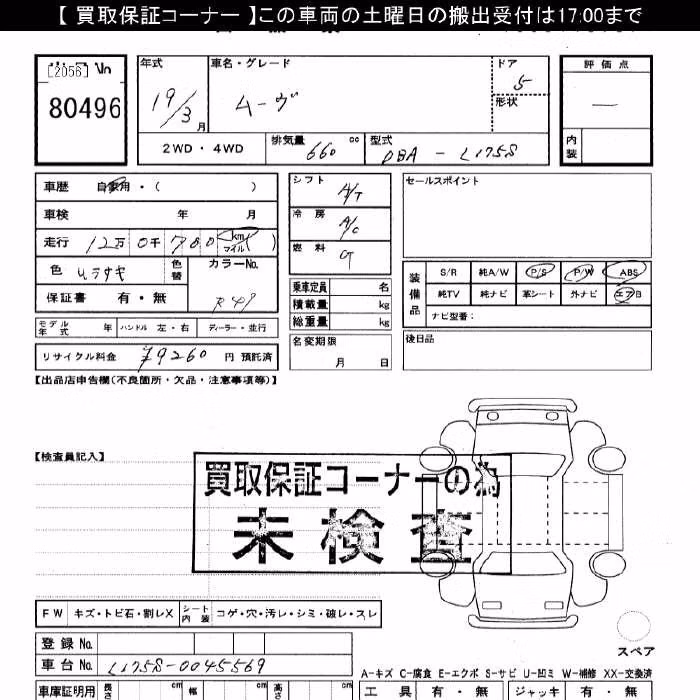 【 買取保証コーナー 】この車両の土曜日の搬出受付は17:00まで
[2056] No
80496
年式 車名・グレード ドア 評価点
19/3月 ムーヴ 5 —
形状
2WD・4WD 排気量 660 cc 型式 DBA - L175S 内装
車歴 自家用・( )
車検 年 月
走行 12万 0千 700 km マイル( )
色 色替 カラーNo.
R49
保証書 有・無
モデル年式 年 ハンドル 左・右 ディーラー・並行
リサイクル料金 ¥9260 円 預託済
シフト A/T
冷房 A/C
燃料 G
乗車定員 名
積載量 kg
総重量 kg
名変期限
月 日
セールスポイント
装備品 S/R 純A/W P/S P/W ABS
純TV 純ナビ 革シート 外ナビ エアB
ナビ型番:
後日品
【出品店申告欄(不良箇所・欠品・注意事項等)】
【検査員記入】
買取保証コーナーの為
未検査
FW キズ・トビ石・割レX シート内装 コゲ・穴・汚レ・シミ・破レ・スレ
スペア
登録 No.
車台 No. L175S-0045569
A-キズ C-腐食 E-エクボ S-サビ U-凹ミ W-補修 XX-交換済
車庫証明用 長さ cm 幅 cm 高さ cm
工具 有・無 ジャッキ 有・無